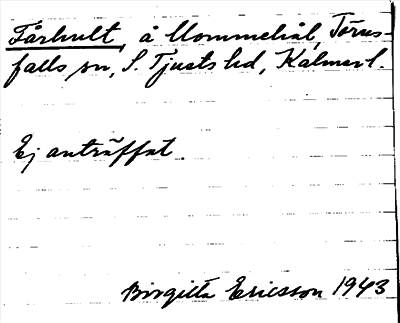 Fårhult, å Mommehål, Törns-
falls sn, S. Tjusts hd, Kalmar l.
Ej anträffat.
Birgitta Ericsson 1943